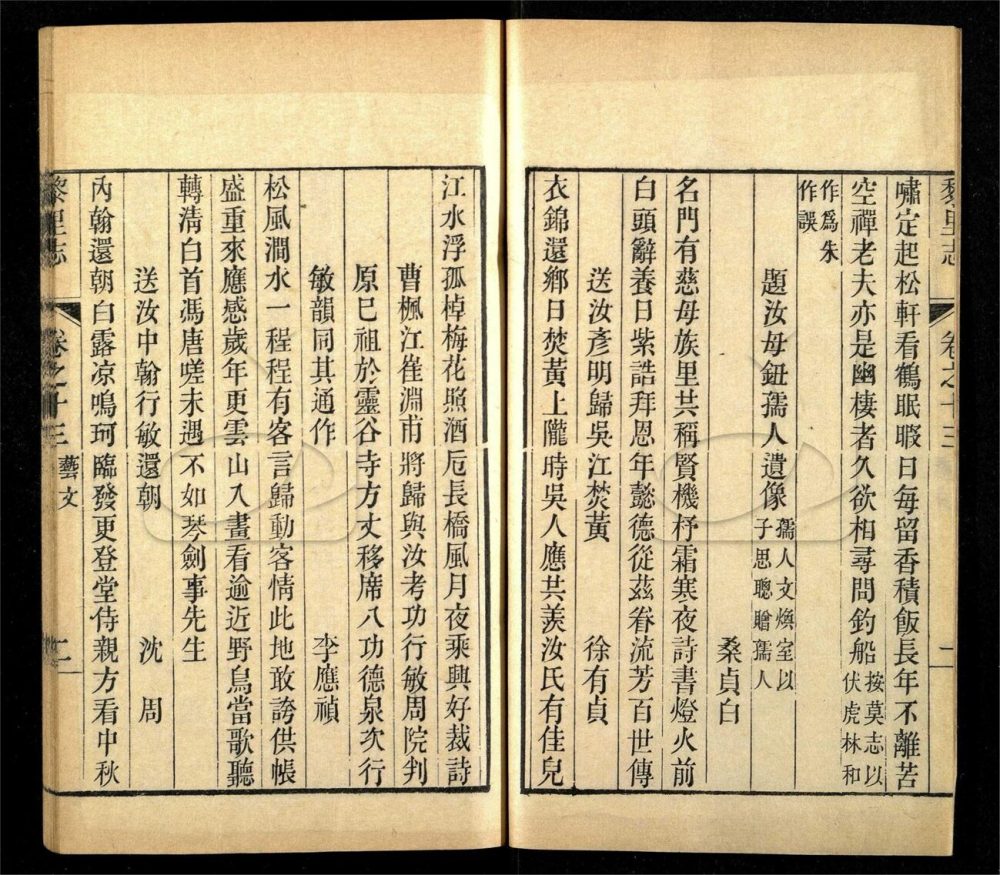 黎里志 卷之十三 二
嘯定起松軒看鶴眠暇日每留香積飯長年不離苦
空禪老夫亦是幽棲者久欲相尋問釣船按莫志以伏虎林和
作為朱作誤
題汝母鈕孺人遺像孺人文煥室以子思聰贈孺人
桑貞白
名門有慈母族里共稱賢機杼霜寒夜詩書燈火前
白頭辭養日紫誥拜恩年懿德從茲眷流芳百世傳
送汝彥明歸吳江焚黃 徐有貞
衣錦還鄉日焚黃上隴時吳人應共羨汝氏有佳兒
江水浮孤棹梅花照酒卮長橋風月夜乘興好裁詩
曹楓江崔淵甫將歸與汝考功行敏周院判
原已祖於靈谷寺方丈移席八功德泉次行
敏韻同其通作 李應禎
松風澗水一程程有客言歸動客情此地敢誇供帳
盛重來應感歲年更雲山入畫看逾近野鳥當歌聽
轉清白首馮唐嗟未遇不如琴劍事先生
送汝中翰行敏還朝 沈周
內翰還朝白露凉鳴珂臨發更登堂侍親方看中秋
黎里志 卷之十三 藝文 二